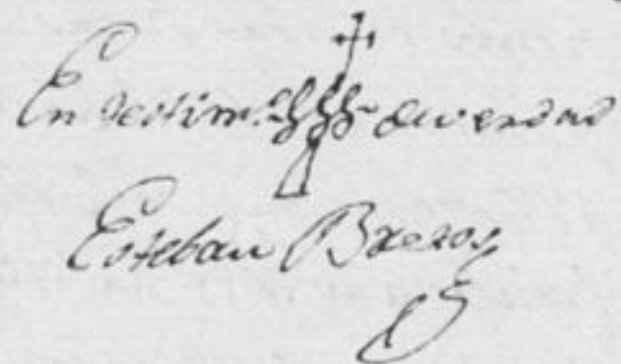 En testim.º de verdad
Esteban Brezos